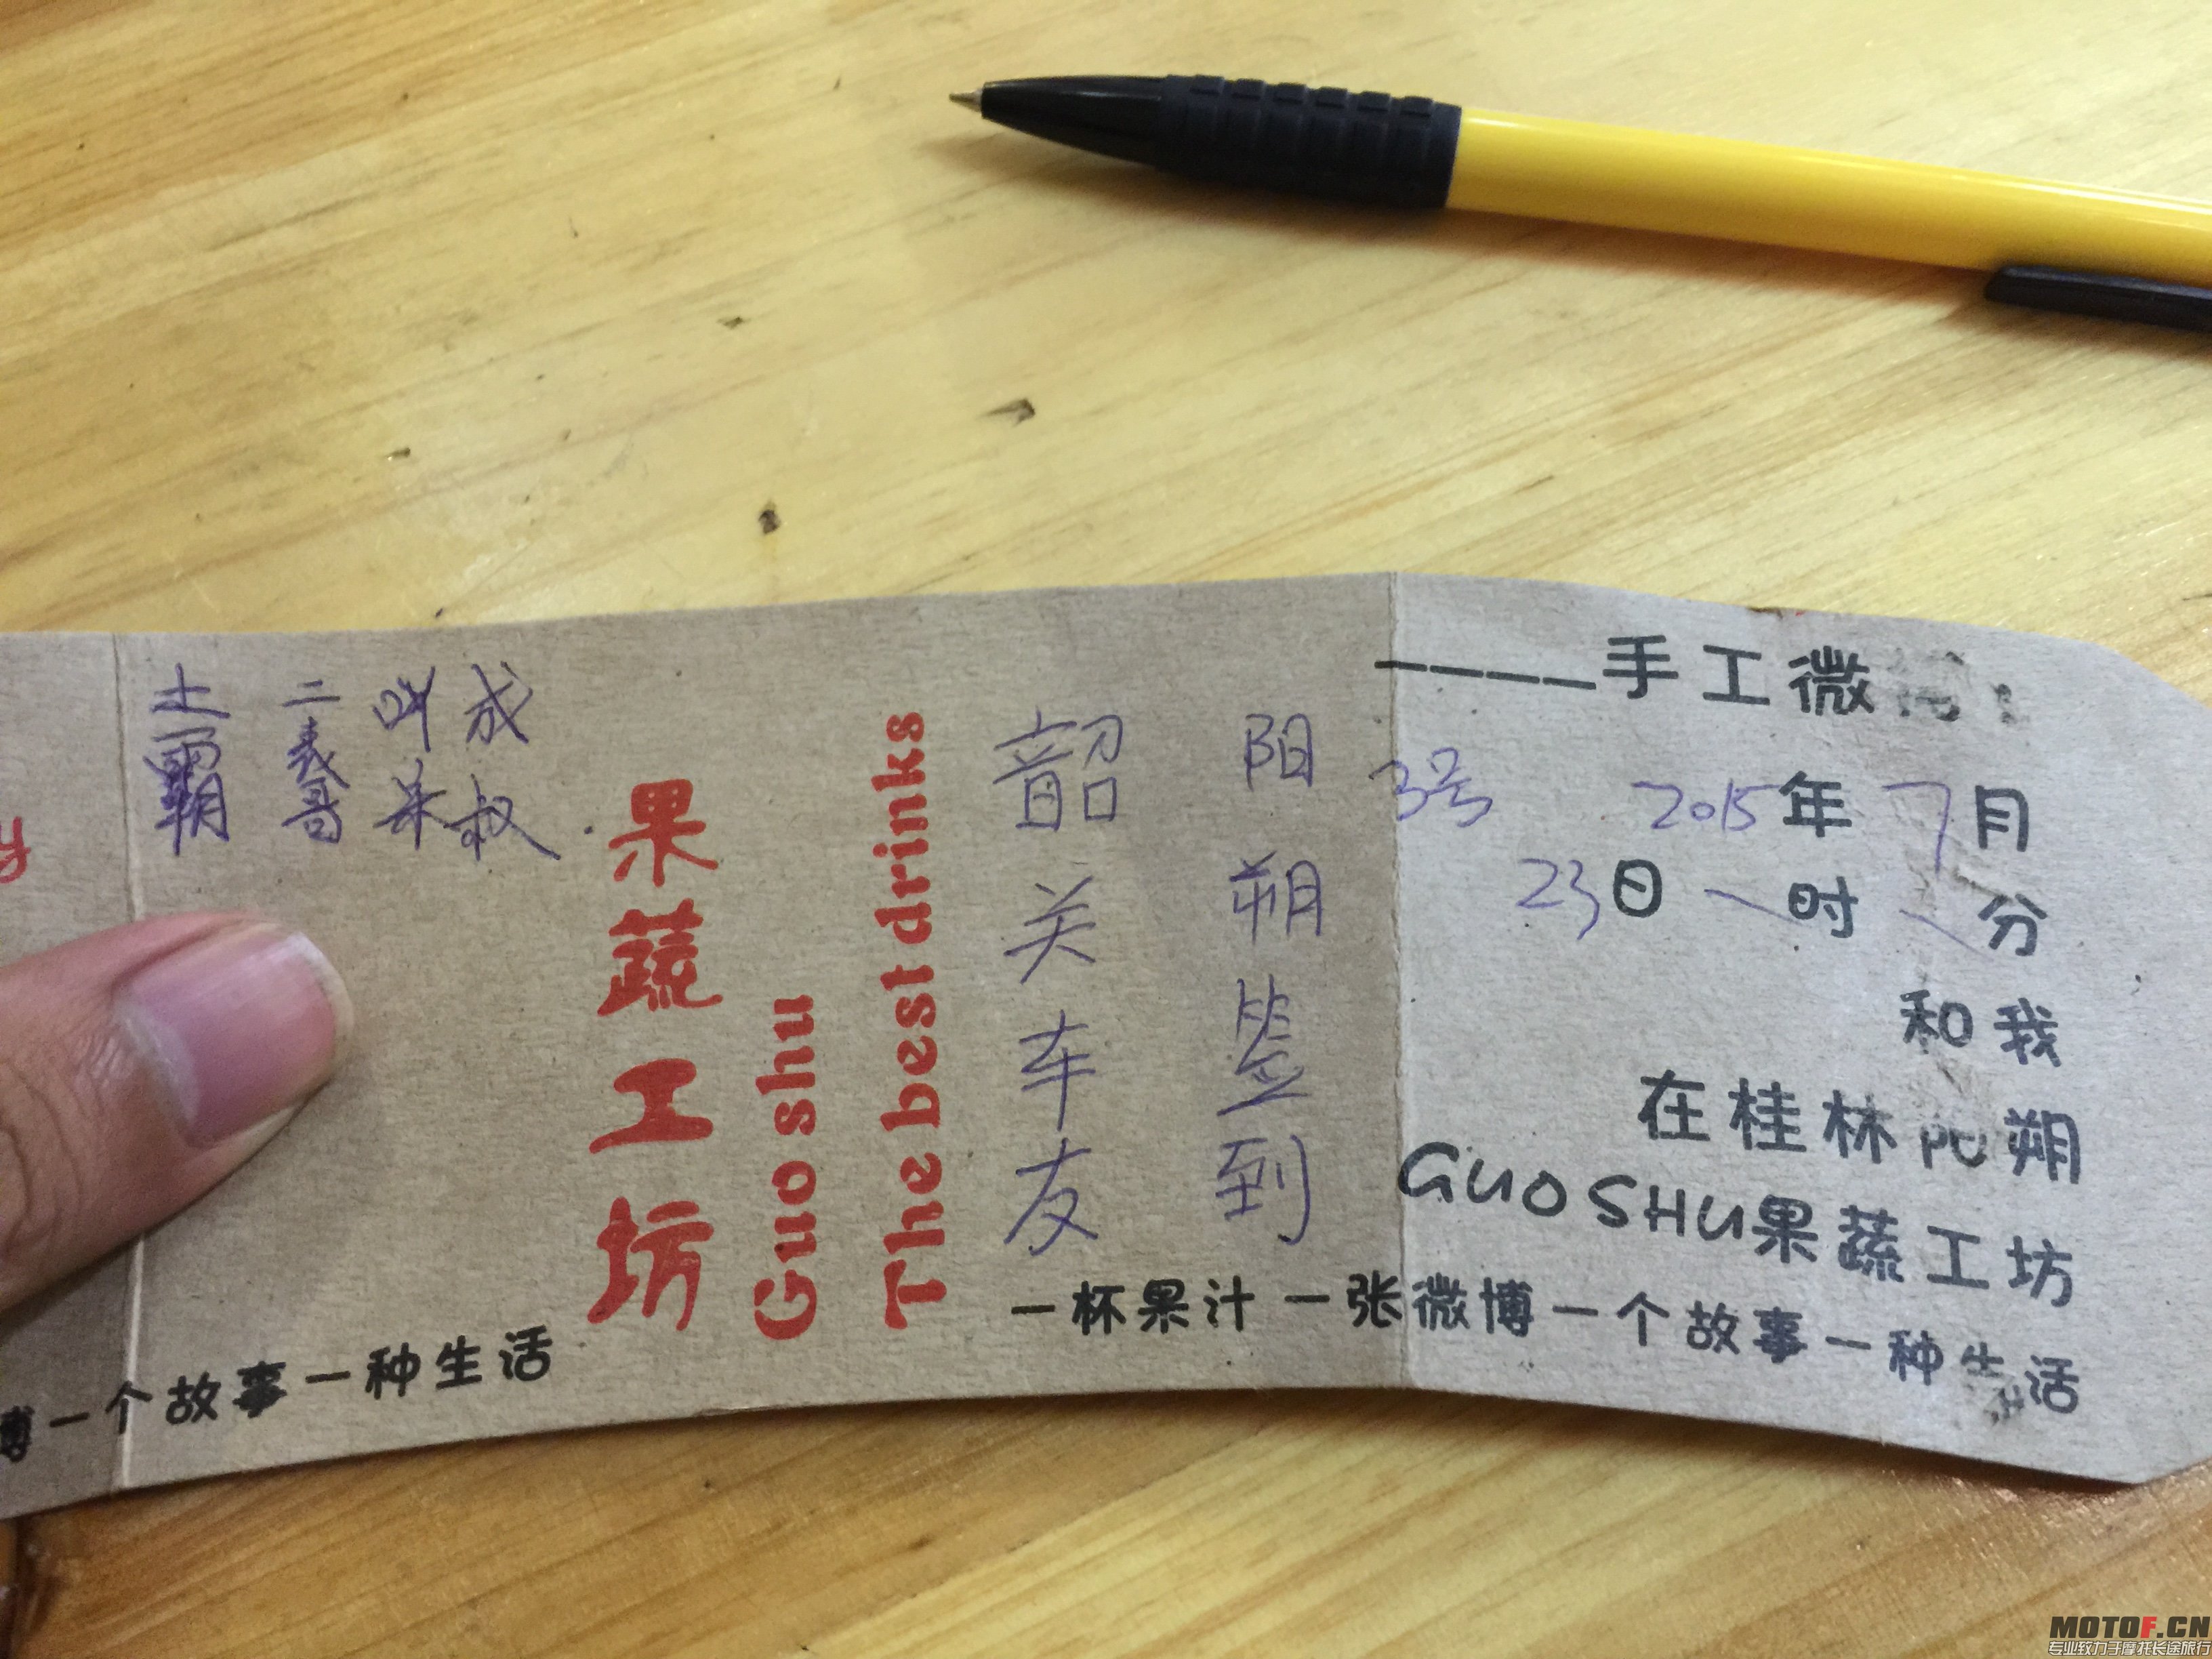 土霸
二表哥
成叔
果蔬工坊
Guo shu
The best drinks
韶关车友
阳朔签到
----手工微
3号 2015年7月
23日 时 分
和我
在桂林阳朔
GUO SHU果蔬工坊
一杯果汁一张微博一个故事一种生活
博一个故事一种生活
y
MOTOF.CN
专业致力于摩托长途旅行